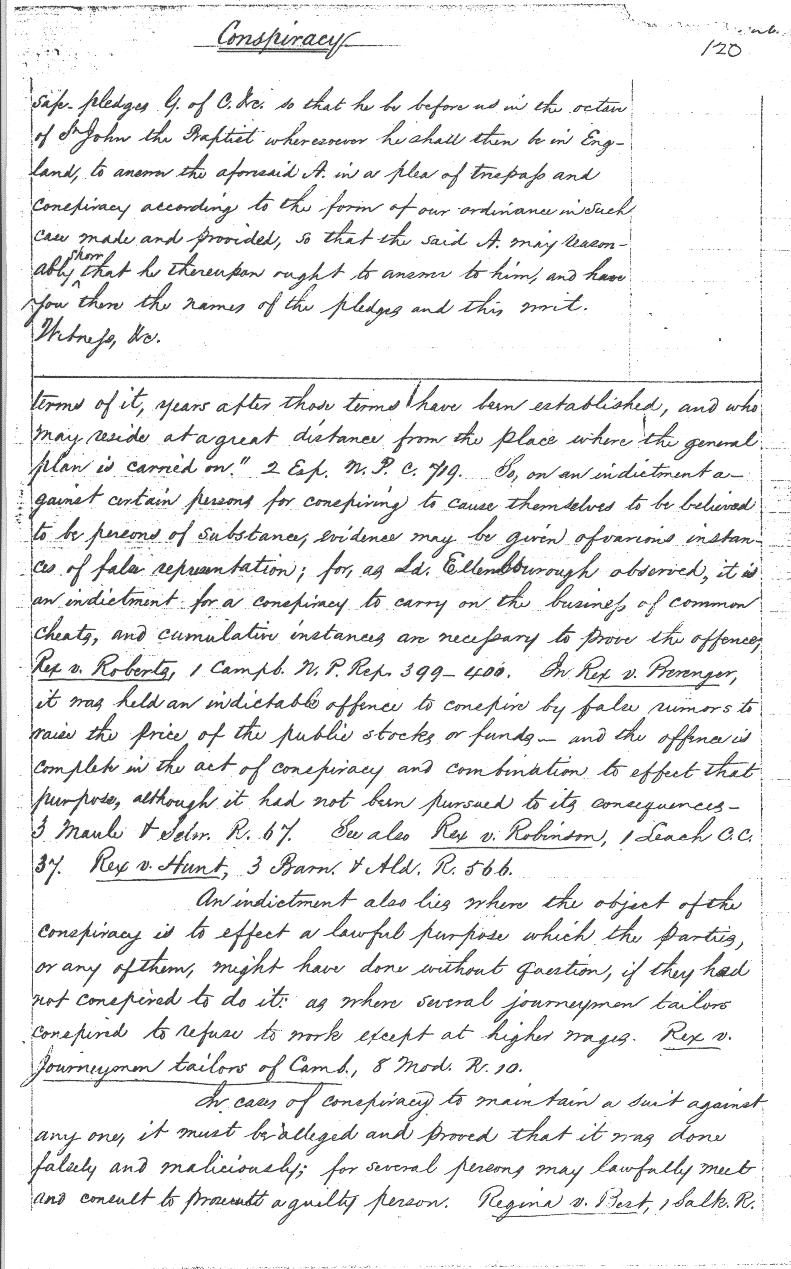 Conspiracy
120
safe pledges G. of C. &c. so that he be before us in the octave
of St John the Baptist wheresoever he shall then be in Eng-
land, to answer the aforesaid A. in a plea of trespass and
conspiracy according to the form of our ordinance in such
case made and provided, so that the said A. may reason-
ably show that he thereupon ought to answer to him, and have
you there the names of the pledges and this writ.
Witness, &c.
terms of it, years after those terms have been established, and who
may reside at a great distance from the place where the general
plan is carried on." 2 Esp. N. P. C. 719. So, on an indictment a-
gainst certain persons for conspiring to cause themselves to be believed
to be persons of substance, evidence may be given of various instan-
ces of false representation; for, as Ld. Ellenborough observed, it is
an indictment for a conspiracy to carry on the business of common
cheats, and cumulative instances are necessary to prove the offence,
Rex v. Roberts, 1 Campb. N. P. Rep. 399-400. In Rex v. Berenger,
it was held an indictable offence to conspire by false rumors to
raise the price of the public stocks or funds— and the offence is
complete in the act of conspiracy and combination to effect that
purpose, although it had not been pursued to its consequences—
3 Maule & Selw. R. 67. See also Rex v. Robinson, 1 Leach C.C.
37. Rex v. Hunt, 3 Barn. & Ald. R. 566.
An indictment also lies where the object of the
conspiracy is to effect a lawful purpose which the parties,
or any of them, might have done without question, if they had
not conspired to do it: as where several journeymen tailors
conspired to refuse to work except at higher wages. Rex v.
Journeymen tailors of Camb., 8 Mod. R. 10.
In cases of conspiracy to maintain a suit against
any one, it must be alleged and proved that it was done
falsely and maliciously; for several persons may lawfully meet
and consult to prosecute a guilty person. Regina v. Best, 1 Salk. R.